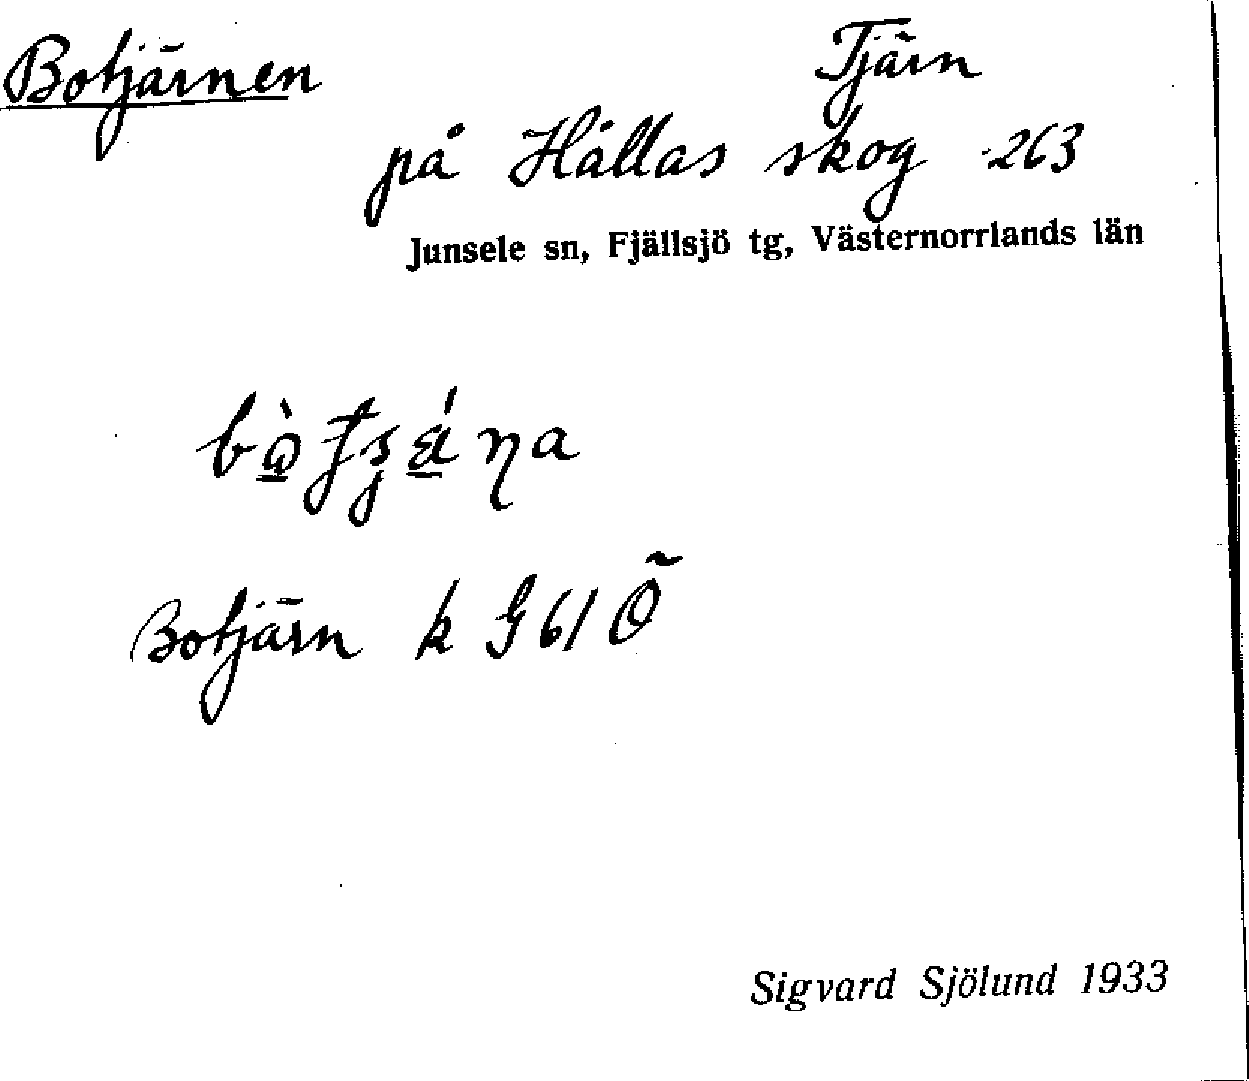 Botjärnen
Tjärn
på Hållas skog 263
Junsele sn, Fjällsjö tg, Västernorrlands län
Botjärn k G 61 Ö
Sigvard Sjölund 1933